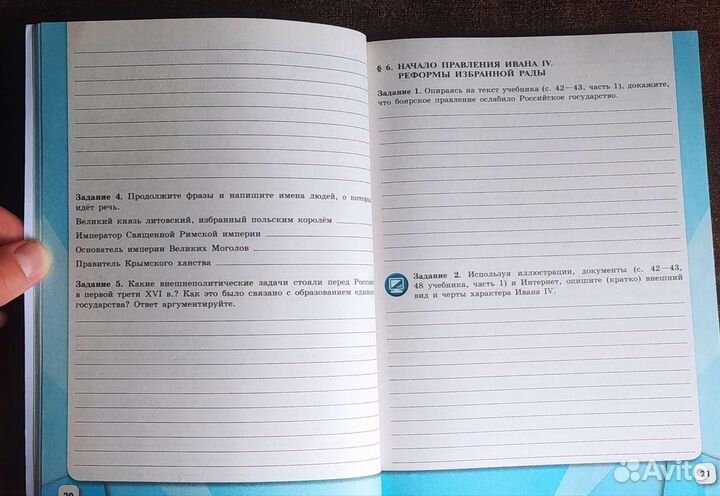 Задание 4. Продолжите фразы и напишите имена людей, о
идёт речь.
Великий князь литовский, избранный польским королём
Император Священной Римской империи
Основатель империи Великих Моголов
Правитель Крымского ханства
Задание 5. Какие внешнеполитические задачи стояли перед
в первой трети XVI в.? Как это было связано с образованием
государства? Ответ аргументируйте.
20
§ 6. НАЧАЛО ПРАВЛЕНИЯ ИВАНА IV.
РЕФОРМЫ ИЗБРАННОЙ РАДЫ
Задание 1. Опираясь на текст учебника (с. 42—43, часть 1), докажите,
что боярское правление ослабило Российское государство.
Задание 2. Используя иллюстрации, документы (с. 42—43,
48 учебника, часть 1) и Интернет, опишите (кратко) внешний
вид и черты характера Ивана IV.
21
Avito